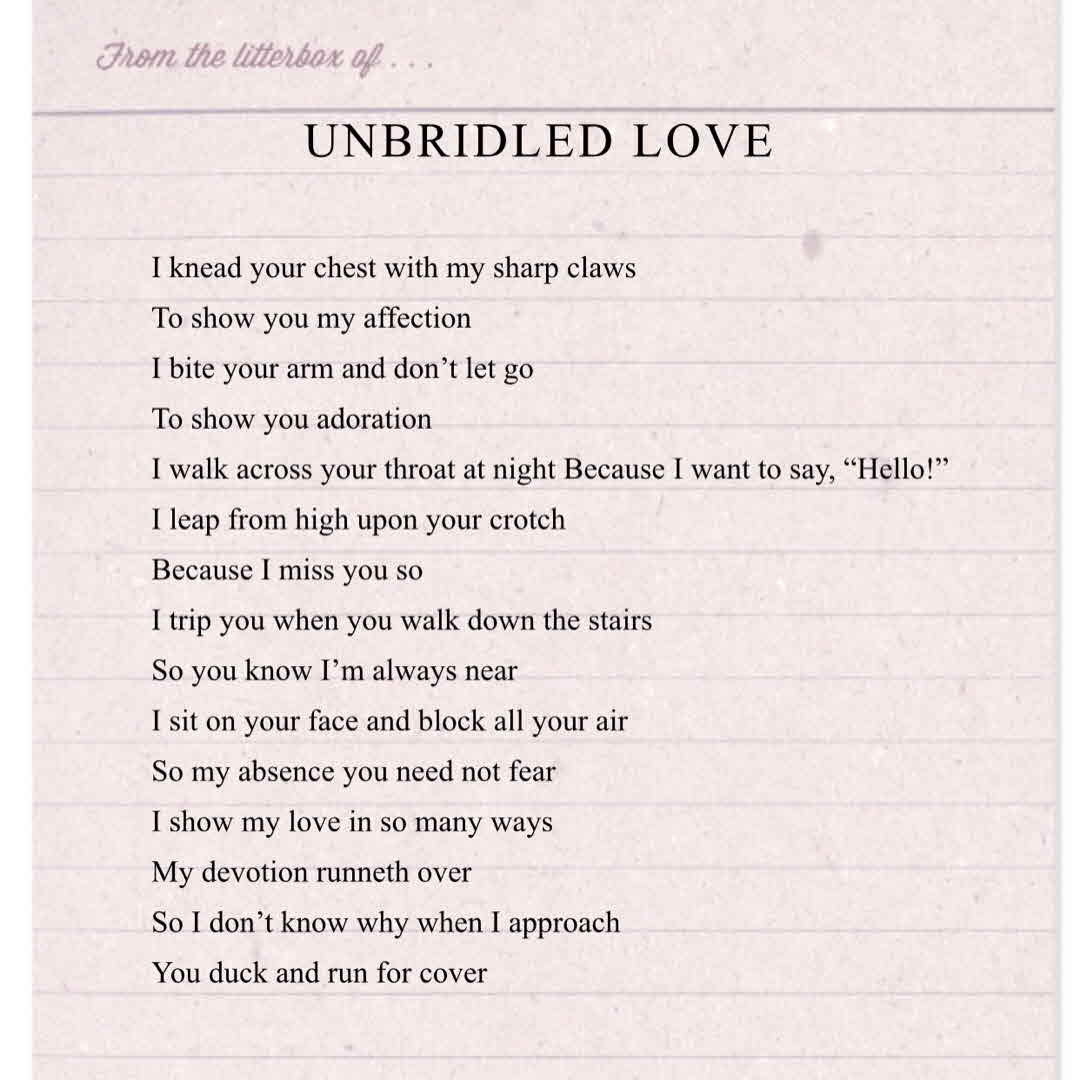 From the litterbox of . . .
UNBRIDLED LOVE
I knead your chest with my sharp claws
To show you my affection
I bite your arm and don’t let go
To show you adoration
I walk across your throat at night Because I want to say, “Hello!”
I leap from high upon your crotch
Because I miss you so
I trip you when you walk down the stairs
So you know I’m always near
I sit on your face and block all your air
So my absence you need not fear
I show my love in so many ways
My devotion runneth over
So I don’t know why when I approach
You duck and run for cover